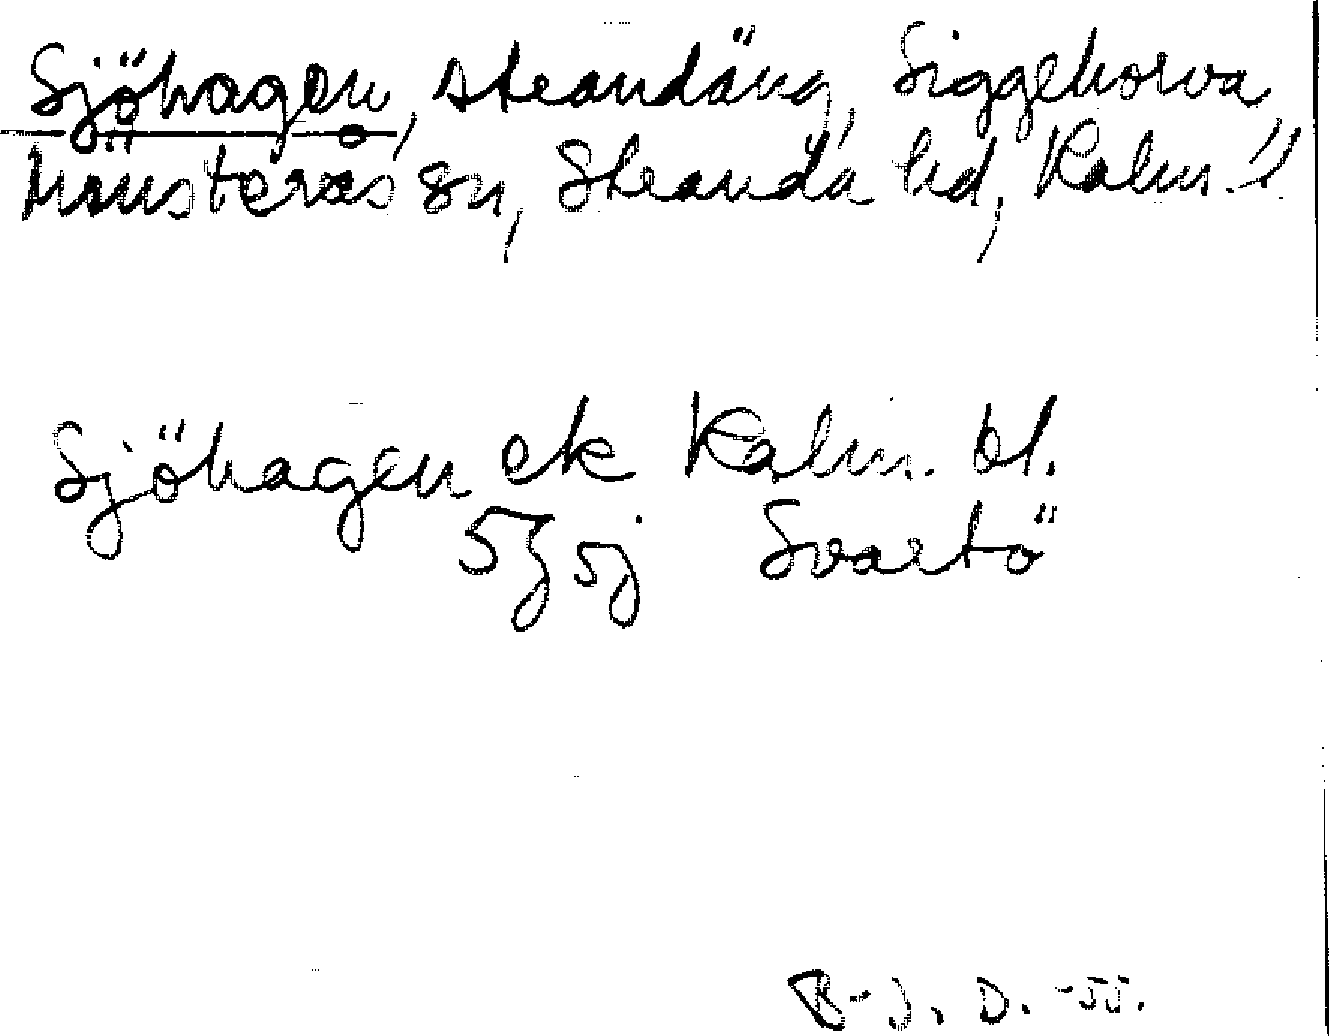 Sjöhagen, strandäng, Siggehorva
Mönsterås sn, Stranda hd, Kalm. l
Sjöhagen ek Kalm. bl.
5g sj Svartö
B-J. D. -55.